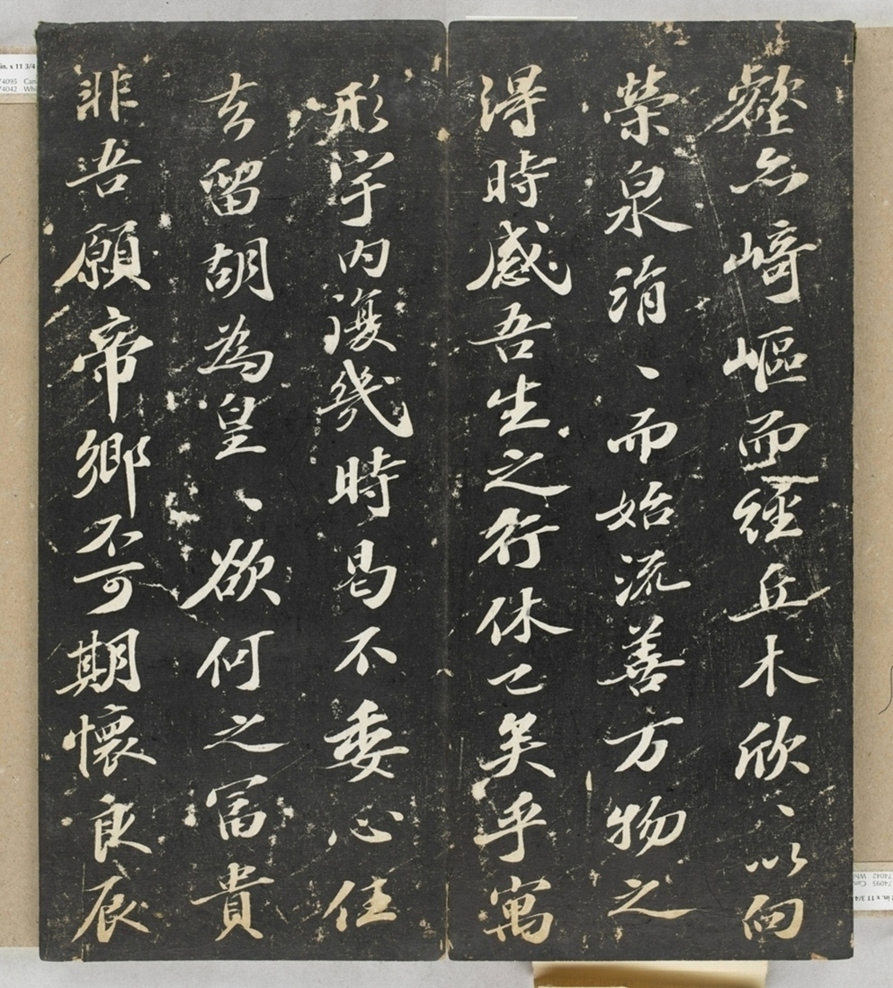 壑亦崎嶇而經丘木欣、以向
榮泉涓、而始流善万物之
得時感吾生之行休已矣乎寓
形宇內復幾時曷不委心任
去留胡為皇、欲何之富貴
非吾願帝鄉不可期懷良辰